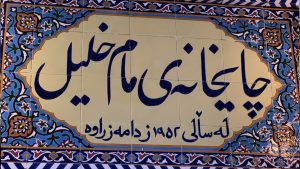 چایخانەی مام خلیل
لە ساڵی ۱۹٥۲ ز دامەزراوە